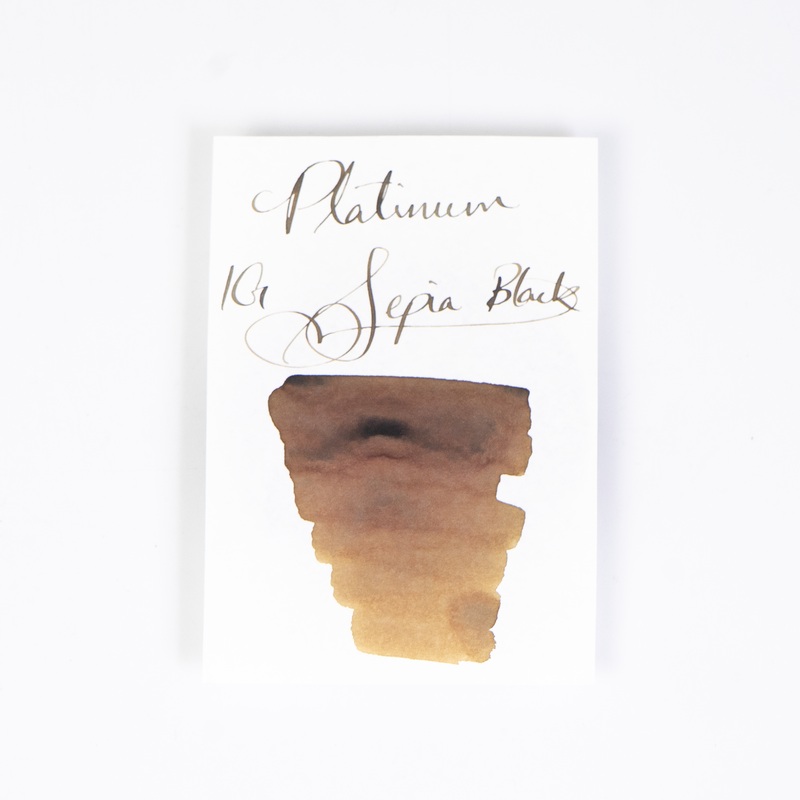 Platinum
IG Sepia Black